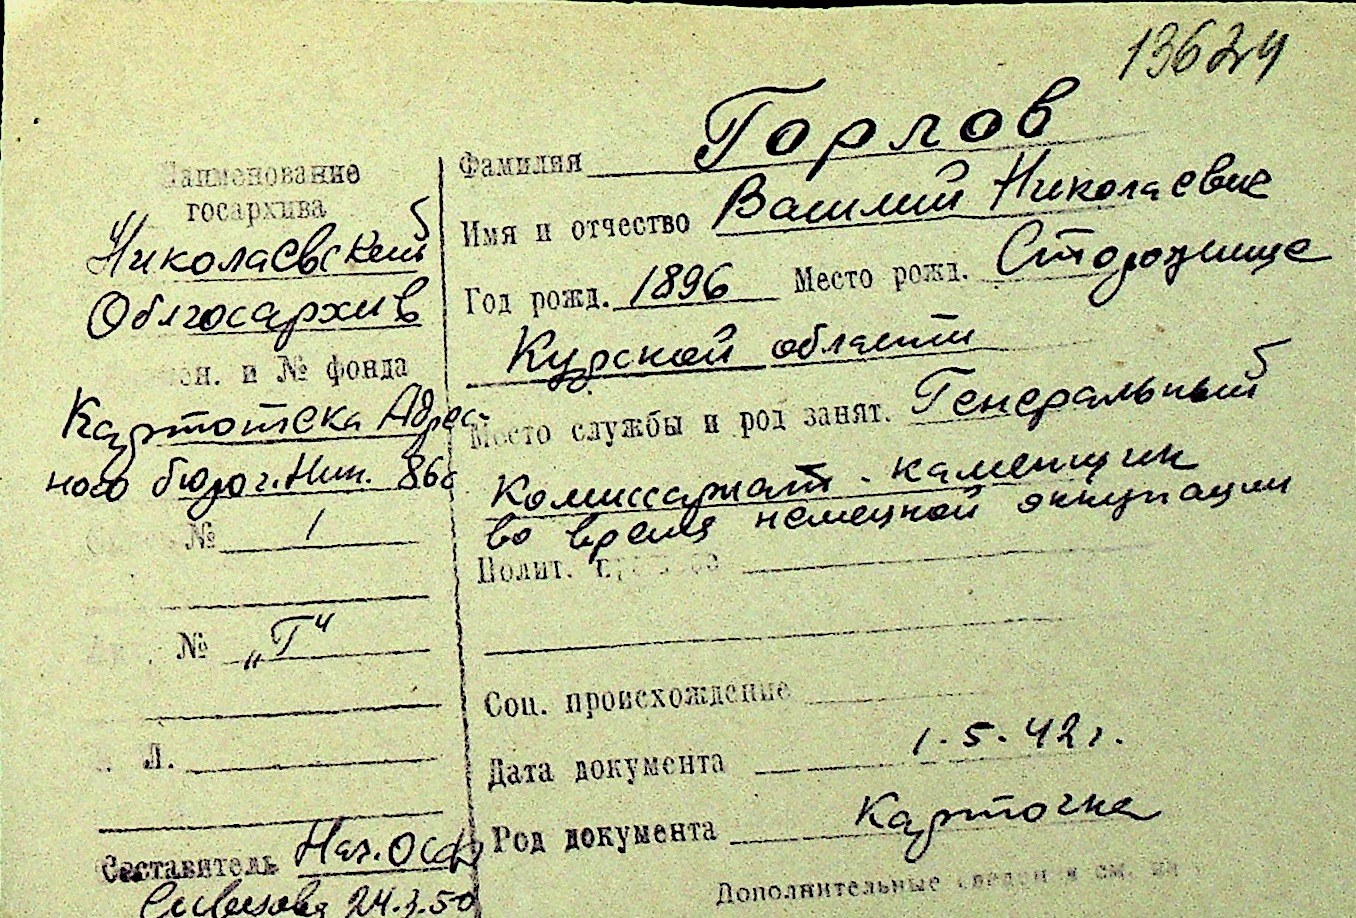 13624
Наименование
госархива
Николаевский
Облгосархив
и № фонда
Картотека Адрес-
ного бюро г. Ник.
№ 1
№ „Г"
Л.
Составитель Нач. ОСФ
24.3.50
Фамилия Горлов
Имя и отчество Василий Николаевич
Год рожд. 1896 Место рожд.
Курской области
Место службы и род занят. Генеральный
Комиссариат - каменщик
во время немецкой оккупации
Полит.
Соц. происхождение
Дата документа 1.5.42 г.
Род документа Карточка
Дополнительные сведения см. на